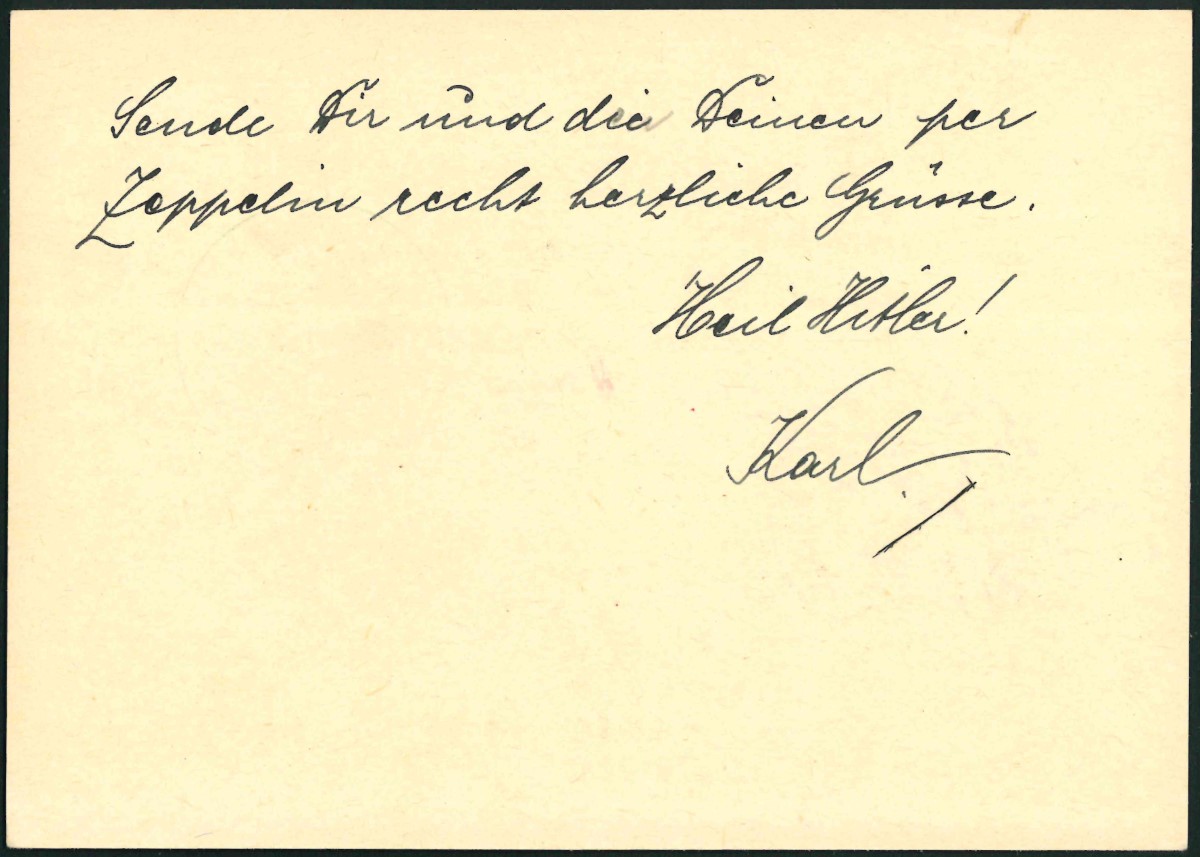 Sende Dir und die Deinen per
Zeppelin recht herzliche Grüsse.
Heil Hitler!
Karl